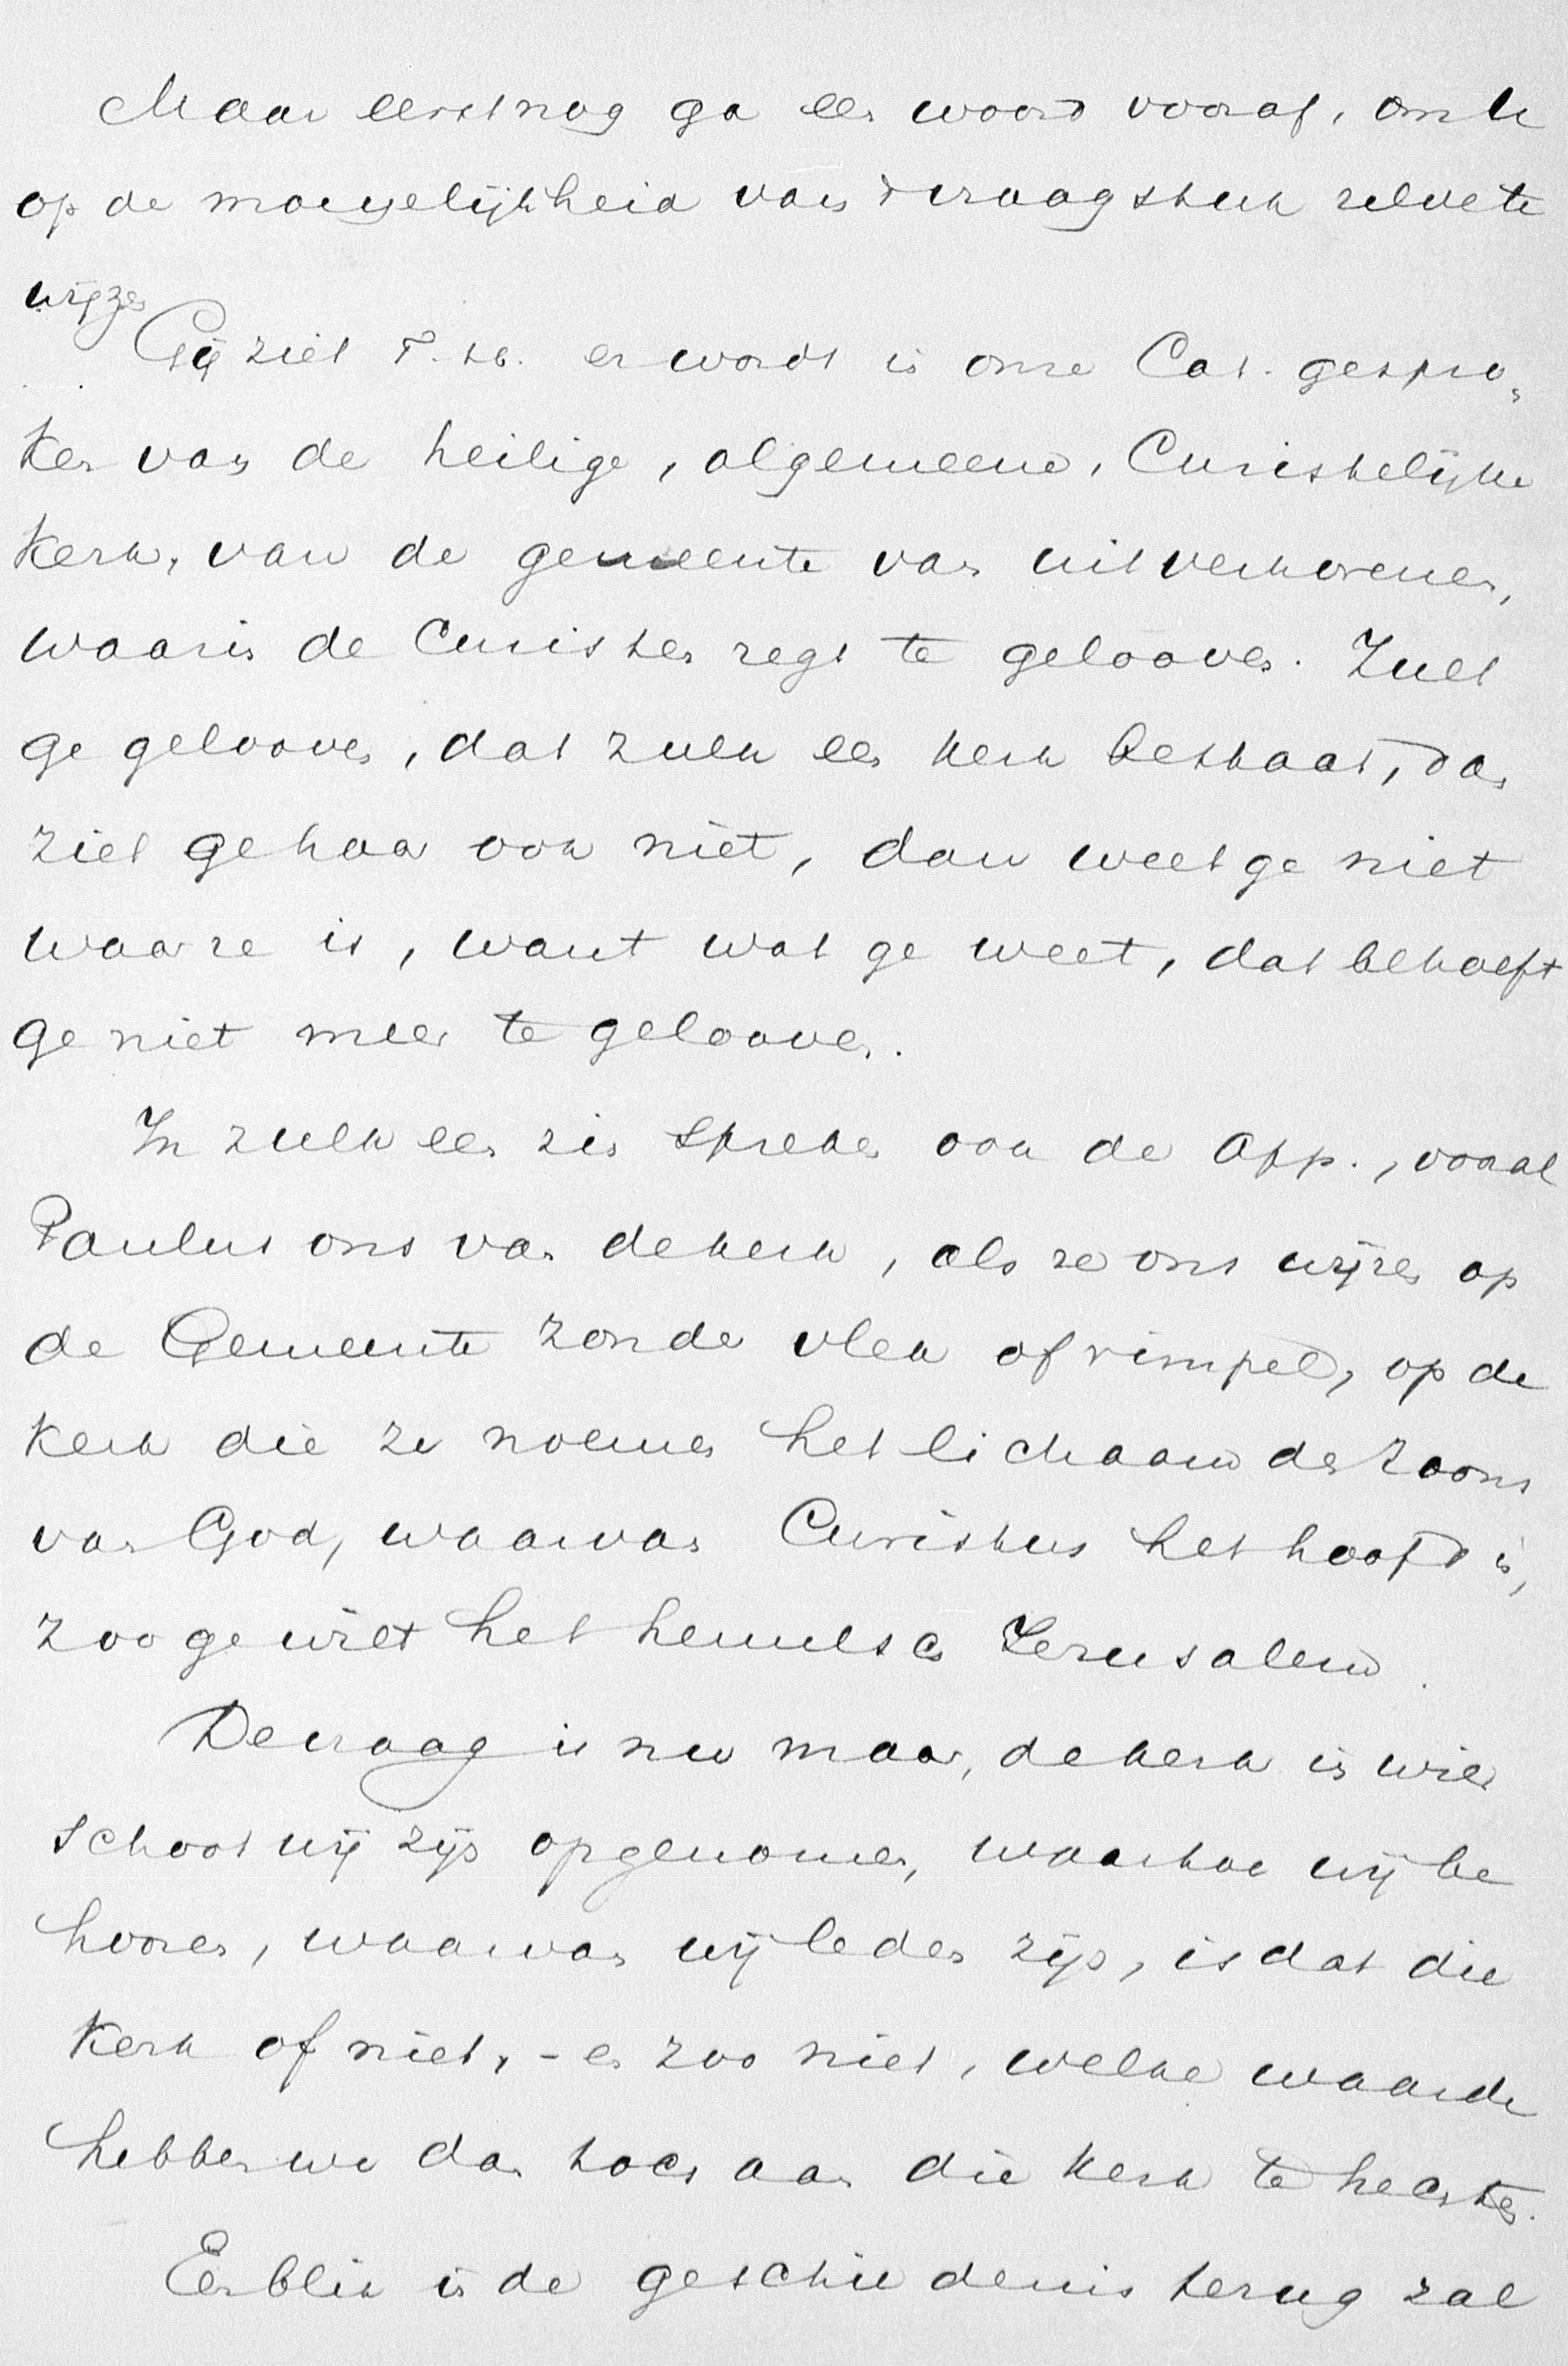 Maar eerst nog ga een woord vooraf, om U
op de moeijelijkheid van 't vraagstuk zelve te
wijzen
Gij ziet T. H. er wordt in onze Cat. gespro-
ken van de heilige, algemeene, Christelijke
Kerk, van de gemeente van uitverkorenen,
waarin de Christen zegt te gelooven. Zult
ge gelooven, dat zulk een kerk bestaat, dan
ziet ge haar ook niet, dan weet ge niet
waar ze is, want wat ge weet, dat behoeft
ge niet meer te gelooven.
In zulk een zin spreken ook de App., vooral
Paulus ons van de kerk, als ze ons wijzen op
de Gemeente zonder vlek of rimpel, op de
Kerk die ze noemen het lichaam des Zoons
van God, waarvan Christus het hoofd is,
zoo ge wilt het hemelsch Jerusalem.
De vraag is nu maar, de kerk in wier
schoot wij zijn opgenomen, waartoe wij be
hooren, waarvan wij leden zijn, is dat die
Kerk of niet, - en zoo niet, welke waarde
hebben we dan toch aan die Kerk te hechten.
Een blik in de geschiedenis terug zal